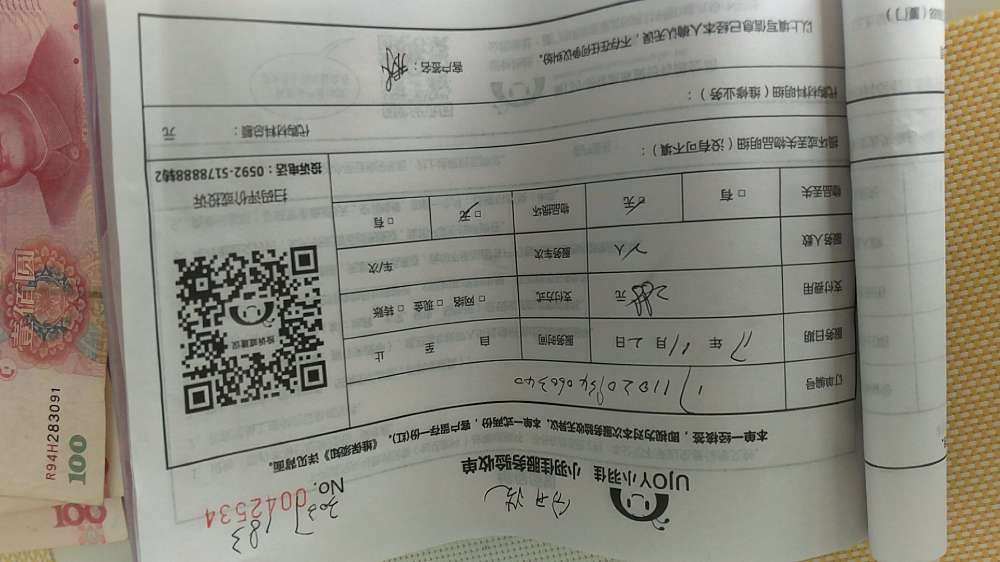 UJOY小羽佳 小羽佳服务验收单
No. 0042534
本单一经核签，即视为对本次服务验收无异议。本单一式两份，客户留存一份(红)。《维保须知》详见背面。
订单编号
服务日期 17年11月2日 服务时间 自 至 止
支付费用 元 支付方式 □网络 □现金 □转账
服务人数 2人 服务车次 车/次
物品丢失 □有 □无 物品损坏 □无 □有
损坏或丢失物品明细（没有可不填）：
代购材料明细（维修业务）：
代购材料总额： 元
以上填写信息已经本人确认无误，不存在任何争议纠纷。
客户签名：
投诉或建议
扫码评价或投诉
投诉电话：0592-5178888转2
（厦门）
壹佰圆
R94H283091
100
100